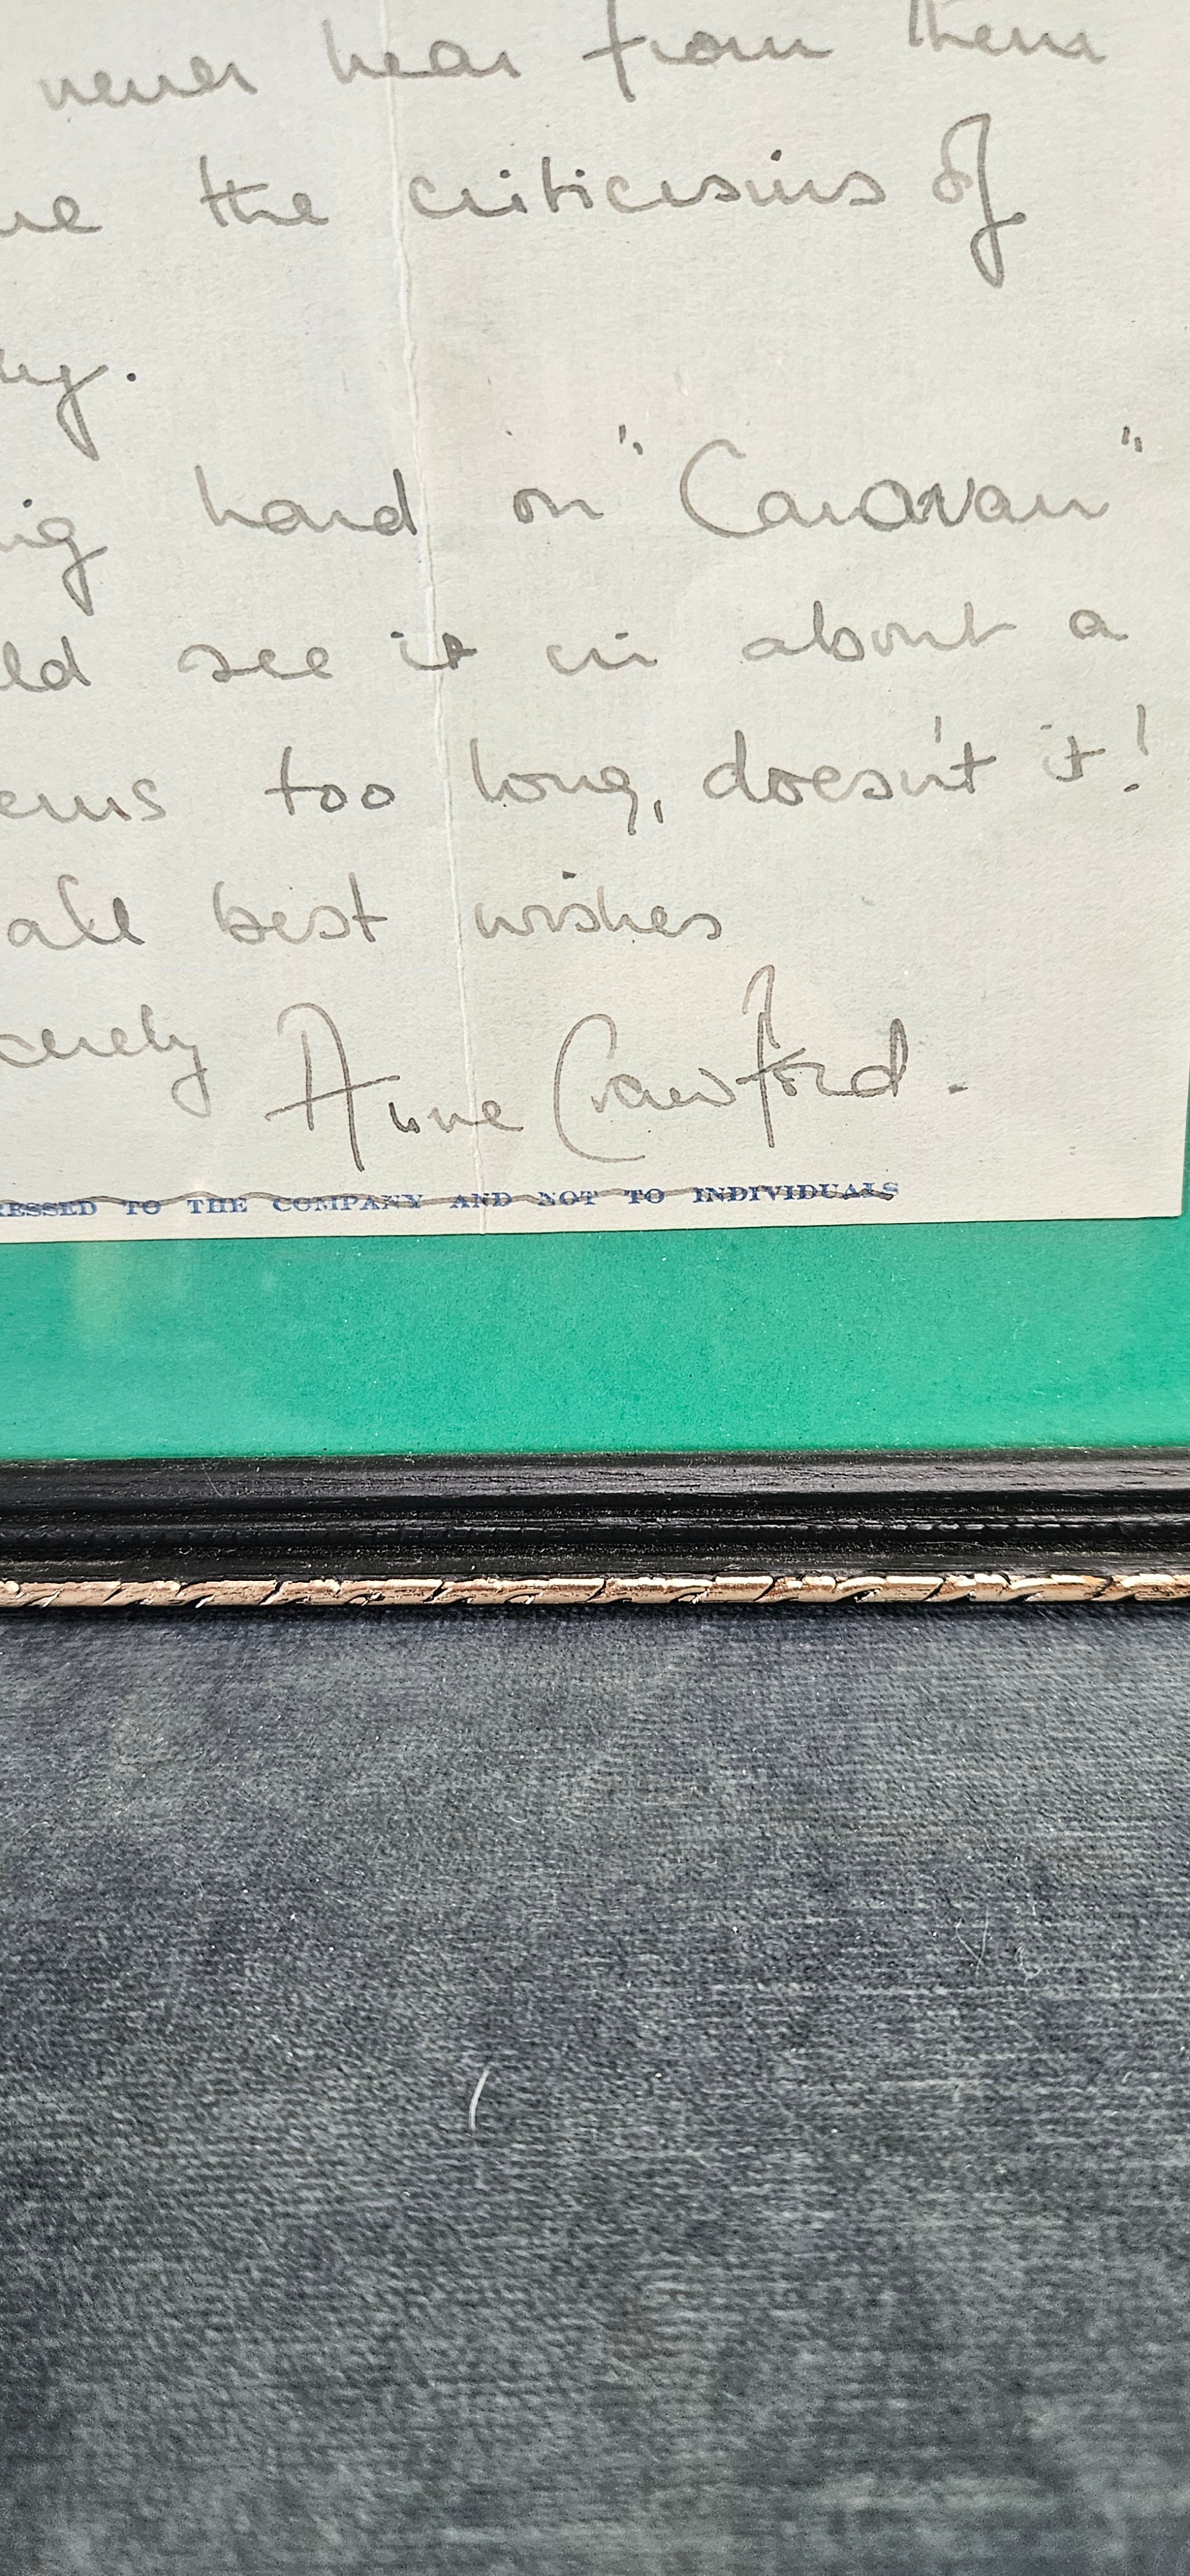 never hear from them
the criticisms of
hard on "Caravan"
ld see it in about a
ems too long, doesn't it!
all best wishes
cerely Anne Crawford.
RESSED TO THE COMPANY AND NOT TO INDIVIDUALS